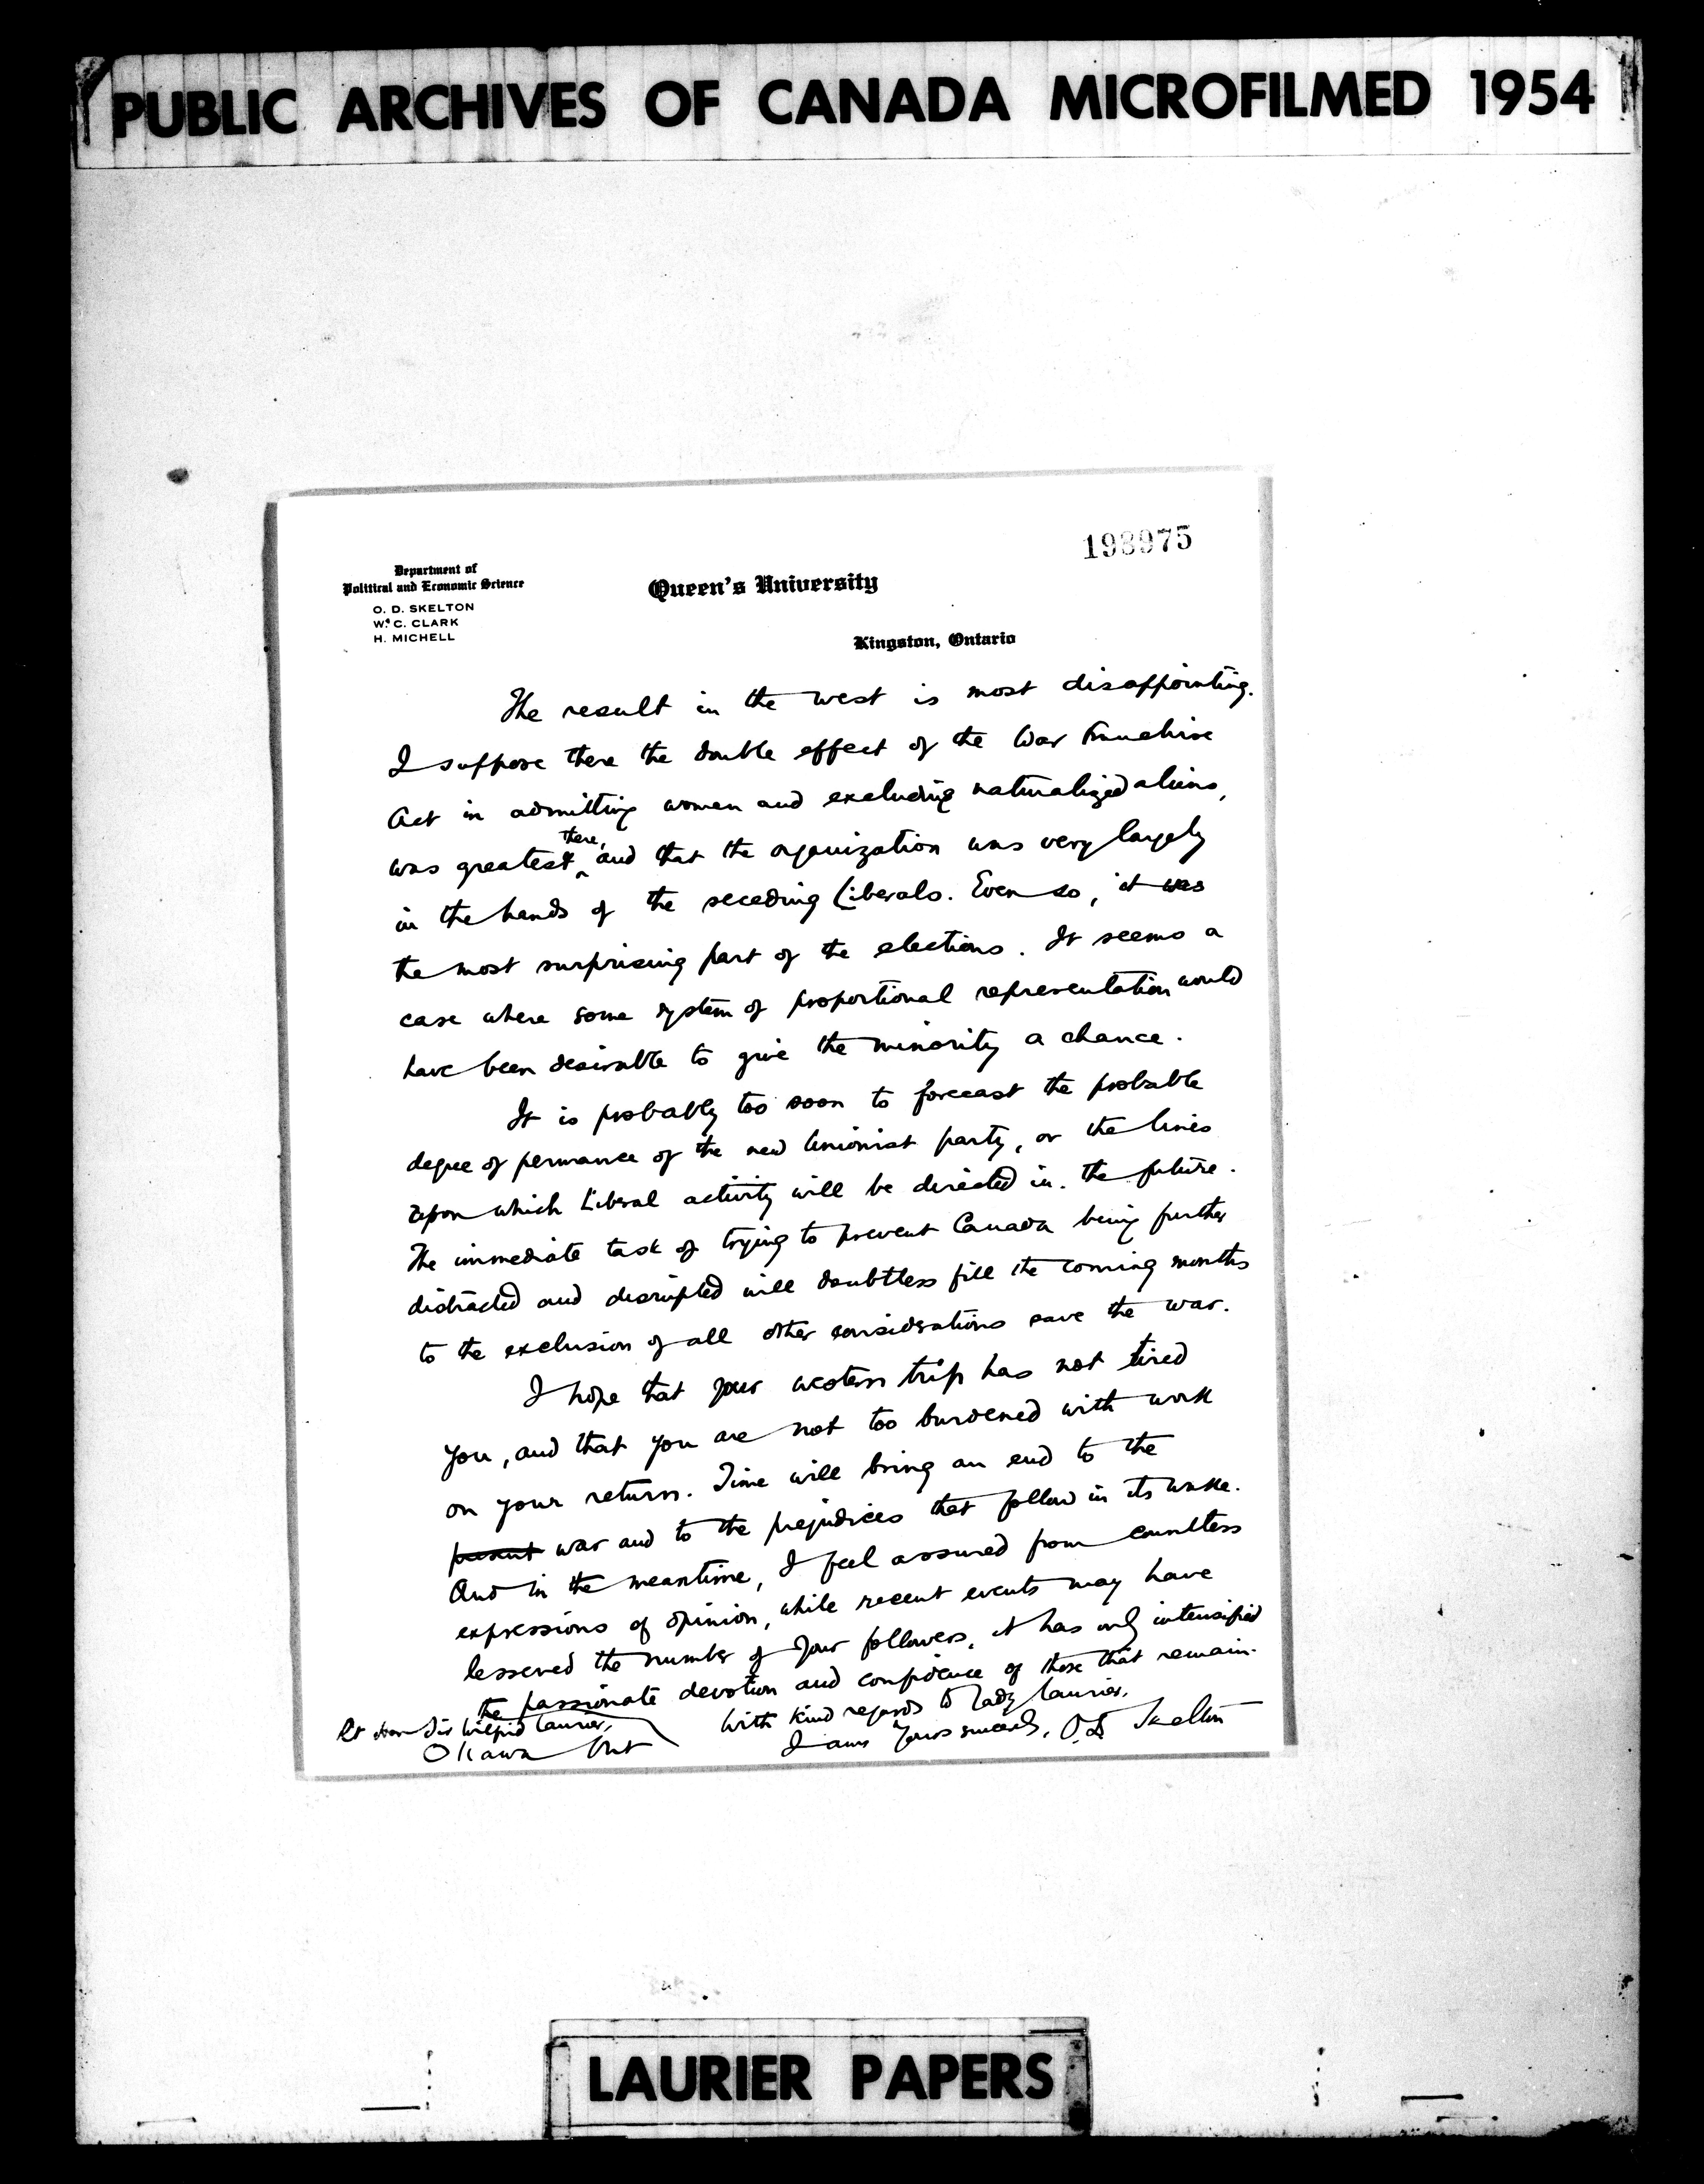 PUBLIC ARCHIVES OF CANADA MICROFILMED 1954
198975
Department of
Political and Economic Science
O. D. SKELTON
W. C. CLARK
H. MICHELL
Queen's University
Kingston, Ontario
The result in the west is most disappointing.
I suppose there the double effect of the War Franchise
Act in admitting women and excluding naturalized aliens,
was greatest there, and that the organization was very largely
in the hands of the seceding Liberals. Even so, it was
the most surprising part of the elections. It seems a
case where some system of proportional representation would
have been desirable to give the minority a chance.
It is probably too soon to forecast the probable
degree of permance of the new Unionist party, or the lines
upon which Liberal activity will be directed in the future.
The immediate task of trying to prevent Canada being further
distracted and disrupted will doubtless fill the coming months
to the exclusion of all other considerations save the war.
I hope that your western trip has not tired
you, and that you are not too burdened with work
on your return. Time will bring an end to the
present war and to the prejudices that follow in its wake.
And in the meantime, I feel assured from countless
expressions of opinion, while recent events may have
lessened the number of your followers, it has only intensified
the passionate devotion and confidence of those that remain.
With kind regards to Lady Laurier,
I am Yours sincerely, O.D. Skelton
Rt Hon Sir Wilfrid Laurier,
Ottawa Ont
LAURIER PAPERS